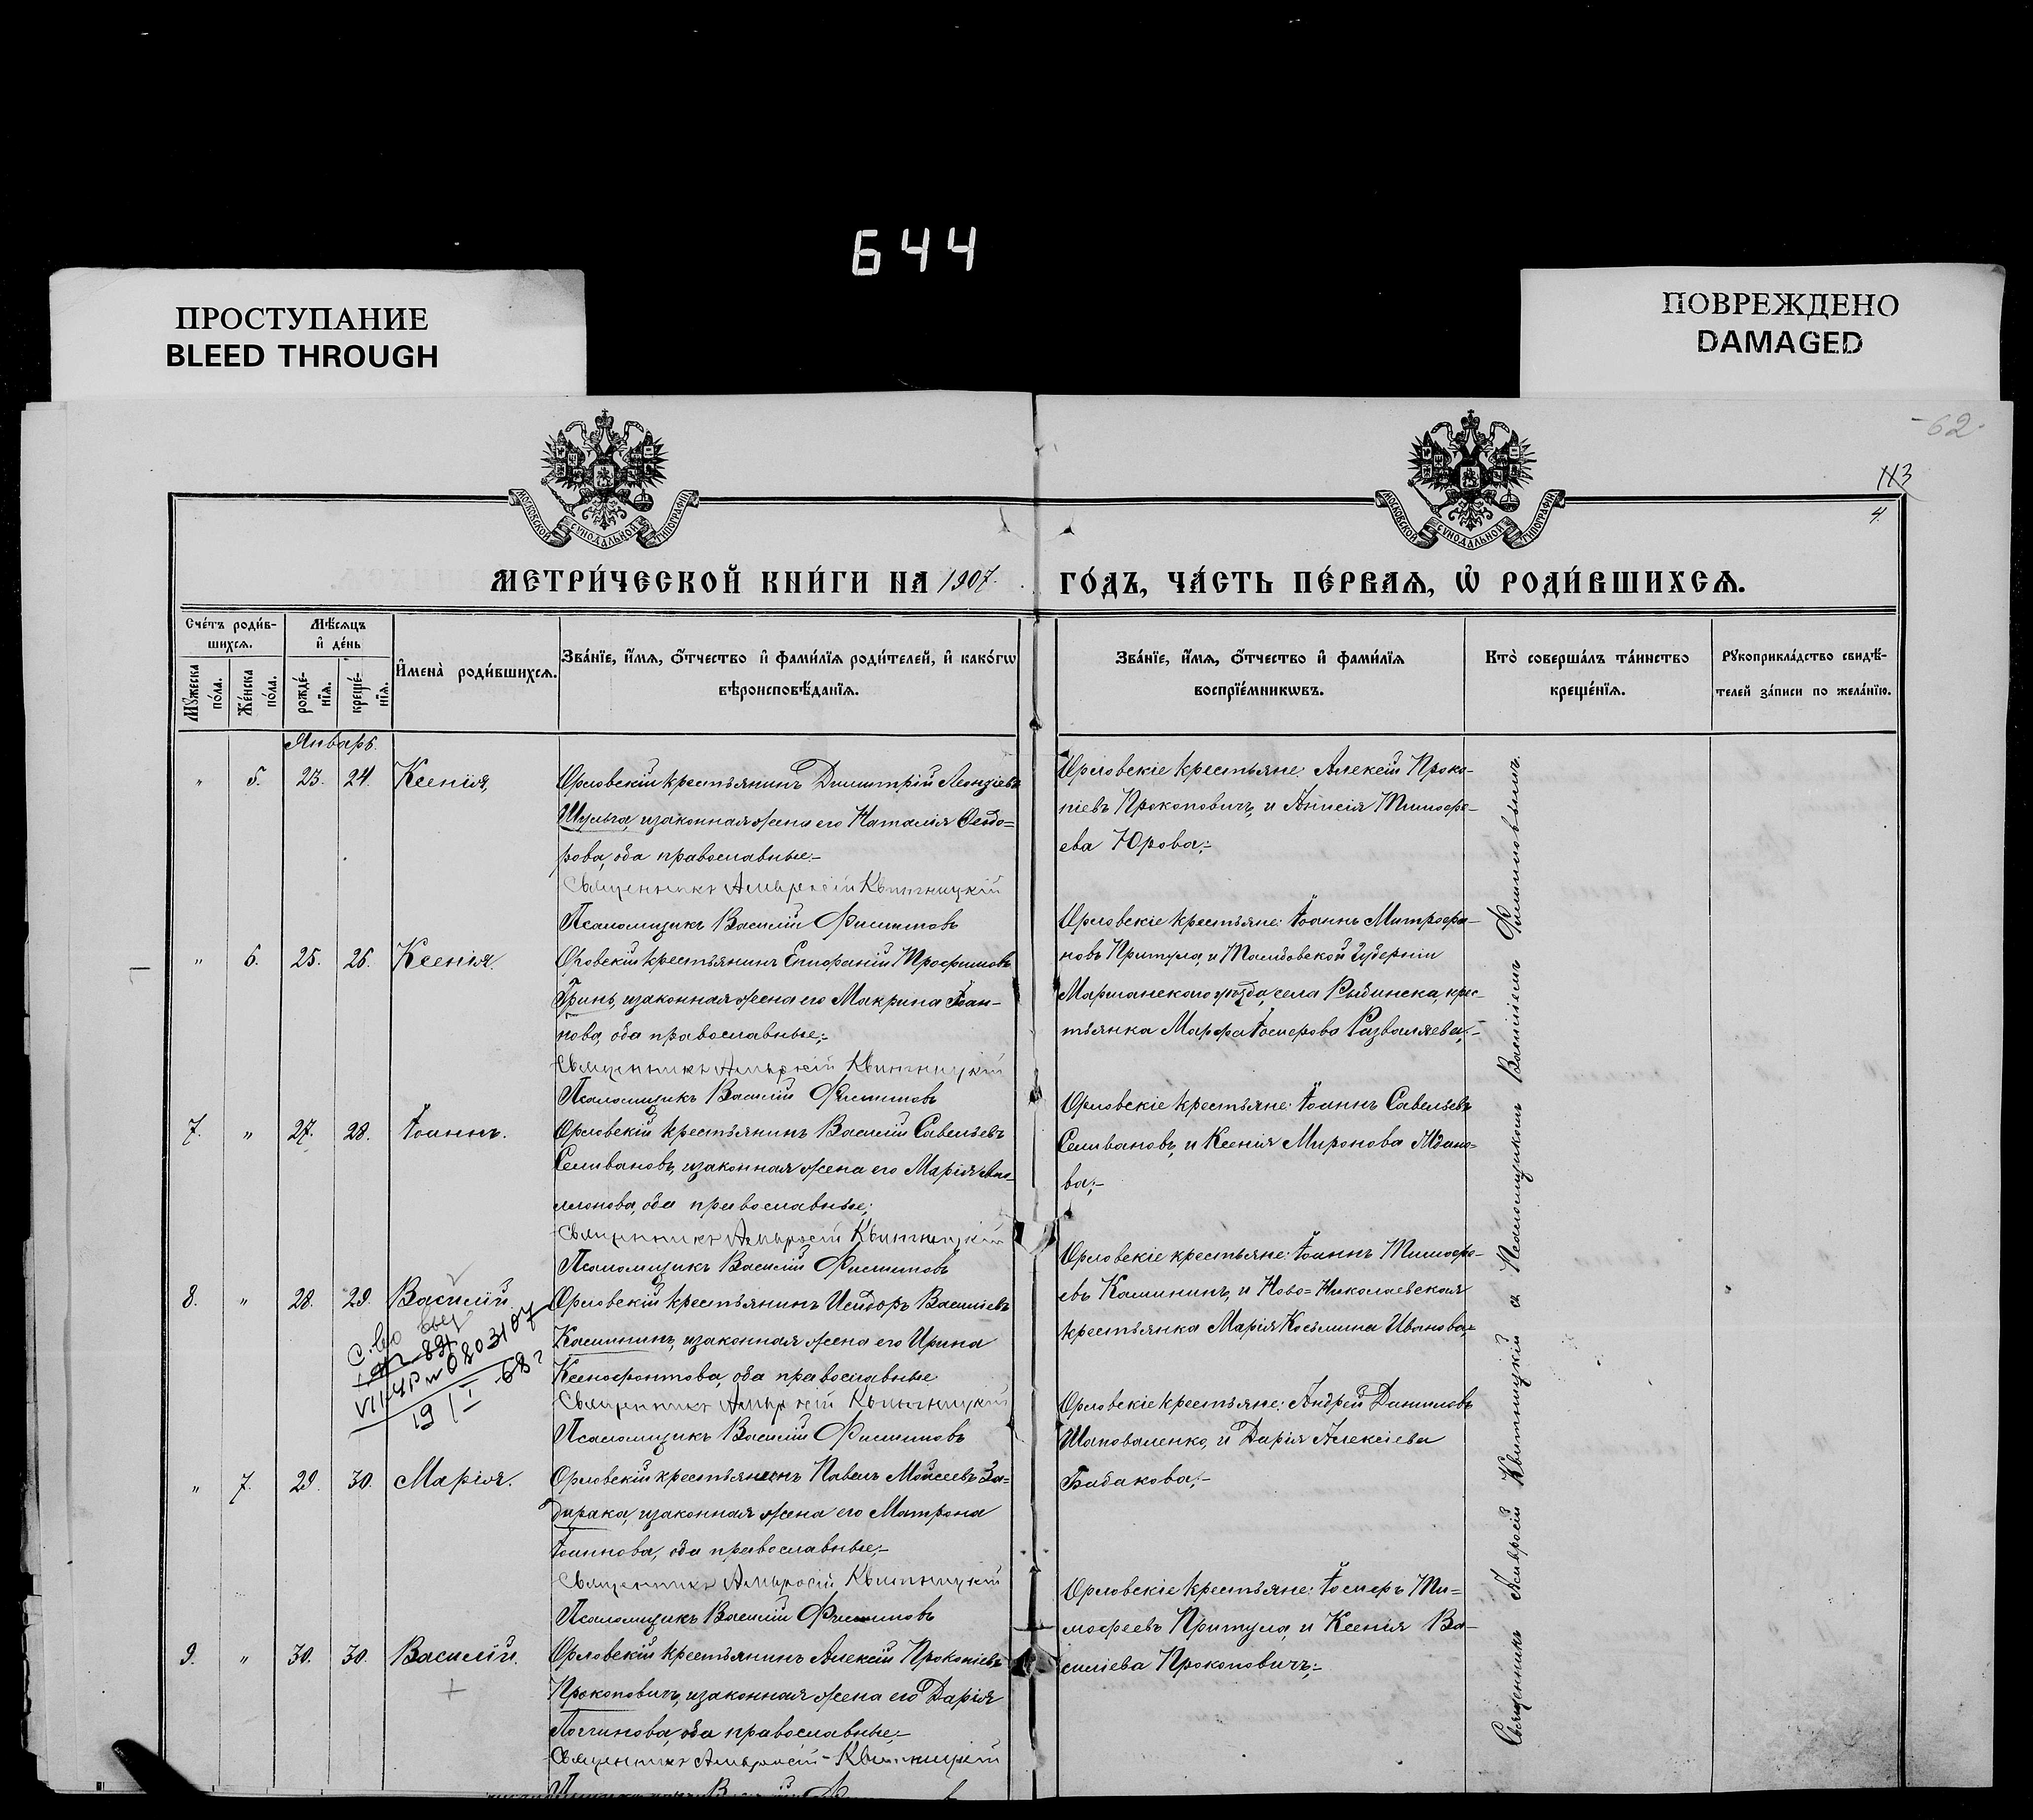 644
ПРОСТУПАНИЕ
BLEED THROUGH
ПОВРЕЖДЕНО
DAMAGED
62
113
4.
МОСКОВСКОЙ СѴНОДАЛЬНОЙ ТИПОГРАФІИ
МОСКОВСКОЙ СѴНОДАЛЬНОЙ ТИПОГРАФІИ
МЕТРИ́ЧЕСКОЙ КНИ́ГИ НА 1907. ГО́ДЪ, ЧА́СТЬ ПЕ́РВАѦ, Ѡ҆ РОДИ́ВШИХСѦ.
Сче́тъ роди́в-
шихсѧ.
Мꙋ́жеска по́ла.
Же́нска по́ла.
Мѣ́сѧцъ
и҆ де́нь
рожде́-
нїѧ.
креще́-
нїѧ.
И҆мена̀ роди́вшихсѧ.
Зва́нїе, и҆́мѧ, ѻ҆́тчество и҆ фами́лїѧ роди́телей, и҆ како́гѡ
вѣроисповѣ́данїѧ.
Зва́нїе, и҆́мѧ, ѻ҆́тчество и҆ фами́лїѧ
воспрїе́мникѡвъ.
Кто̀ соверша́лъ та́инство
креще́нїѧ.
Рꙋкоприкла́дство свидѣ́-
телей за́писи по жела́нїю.
Январь.
" 5. 23. 24. Ксенія,
Орловскій крестьянинъ Димитрій Леонтіевъ
Шульга, и законная жена его Наталія Ѳеодо=
рова, оба православные;-
Священникъ Амвросій Квитницкій
Псаломщикъ Василій Филиповъ
Орловскіе крестьяне: Алексій Проко-
піевъ Прокоповичъ, и Анисія Тимофе-
ева Юрова;-
" 6. 25. 26. Ксенія.
Орловскій крестьянинъ Епифаній Трофимовъ
Гринь, и законная жена его Макрина Іоан-
нова, оба православные;-
Священникъ Амвросій Квитницкій
Псаломщикъ Василій Филиповъ
Орловскіе крестьяне: Іоаннъ Митрофа-
новъ Притула, и Тамбовской губерніи
Моршанскаго уѣзда, села Рыбинска, крес-
тьянка Марфа Іосифова Разваляева;-
7. " 27. 28. Іоаннъ.
Орловскій крестьянинъ Василій Савельевъ
Селивановъ, и законная жена его Марія
оба православные;
Священникъ Амвросій Квитницкій
Псаломщикъ Василій Филиповъ
Орловскіе крестьяне: Іоаннъ Савельевъ
Селивановъ, и Ксенія Миронова Ждано-
ва;-
8. " 28. 29. Василій.
VII-ЧР № 0803107
19/I-68г
Орловскій крестьянинъ Исидоръ Василіевъ
Калининъ, и законная жена его Ирина
Ксенофонтова, оба православные
Священникъ Амвросій Квитницкій
Псаломщикъ Василій Филиповъ
Орловскіе крестьяне: Іоаннъ Тимофе-
евъ Калининъ, и Ново=Николаевская
крестьянка Марія Косьмина Иванова;-
" 7. 29. 30. Марія.
Орловскій крестьянинъ Павелъ Моисеевъ За-
дирака, и законная жена его Матрона
Іоаннова, оба православные;-
Священникъ Амвросій Квитницкій
Псаломщикъ Василій Филиповъ
Орловскіе крестьяне: Андрей Даниловъ
Шаповаленко, и Дарія Алексіева
Бабакова;-
9. " 30. 30. Василій.
Орловскій крестьянинъ Алексій Прокопіевъ
Прокоповичъ, и законная жена его Дарія
Логинова, оба православные;-
Священникъ Амвросій Квитницкій
Орловскіе крестьяне: Іосифъ Ти=
мофеевъ Притула, и Ксенія Ва-
силіева Прокоповичъ;-
Священникъ Амвросій Квитницкій съ Псаломщикомъ Василіемъ Филиповымъ.